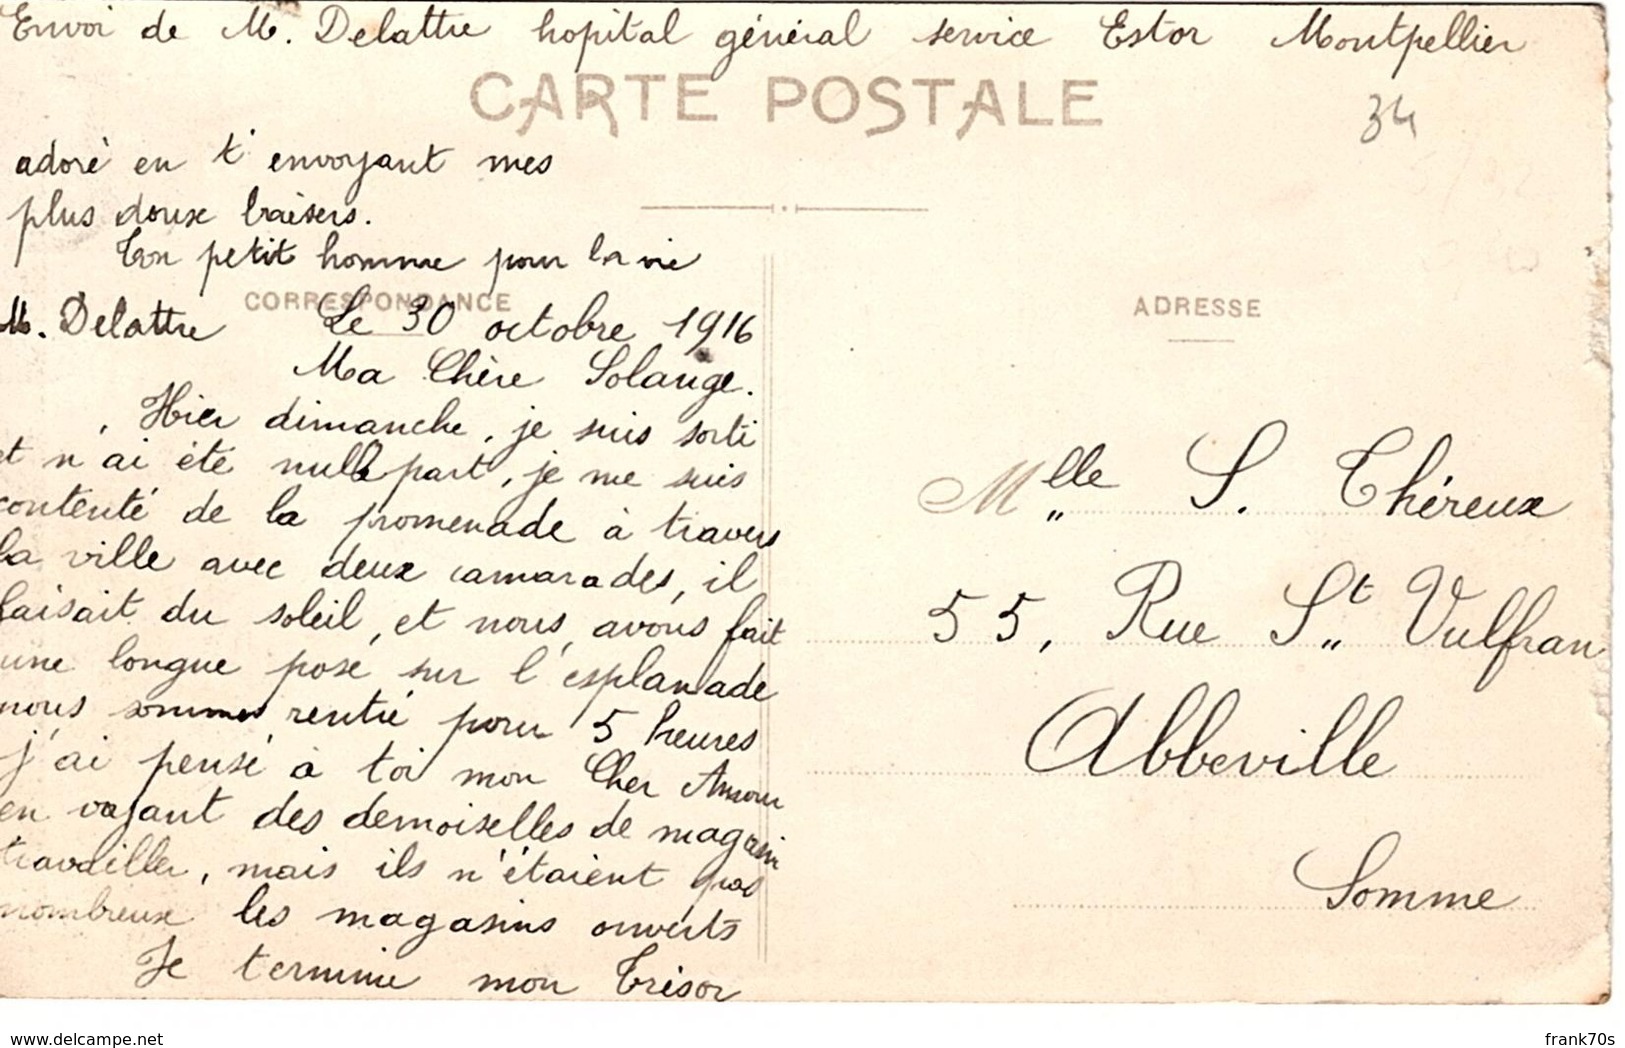 Envoi de M. Delattre hopital général service Estor Montpellier
CARTE POSTALE
34
adoré en t'envoyant mes
plus doux baisers.
Ton petit homme pour la vie
CORRESPONDANCE
M. Delattre Le 30 octobre 1916
Ma Chère Solange.
Hier dimanche, je suis sorti
et n'ai été nulle part, je me suis
contenté de la promenade à travers
la ville avec deux camarades, il
faisait du soleil, et nous avons fait
une longue posé sur l'esplanade
nous sommes rentré pour 5 heures
j'ai pensé à toi mon Cher Amour
en voyant des demoiselles de magasin
travailler, mais ils n'étaient pas
nombreux les magasins ouverts
Je termine mon Trésor
ADRESSE
Mlle S. Théreux
55, Rue St Vulfran
Abbeville
Somme
www.delcampe.net
frank70s